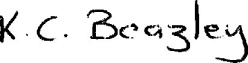 K. C. Beazley